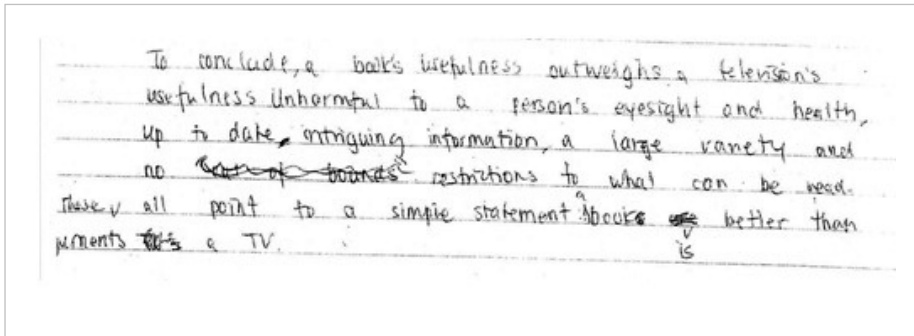 To conclude, a book's usefulness outweighs a television's
usefulness Unharmful to a person's eyesight and health,
up to date, intriguing information, a large variety and
no restrictions to what can be read.
These all point to a simple statement: a book is better than
a TV.